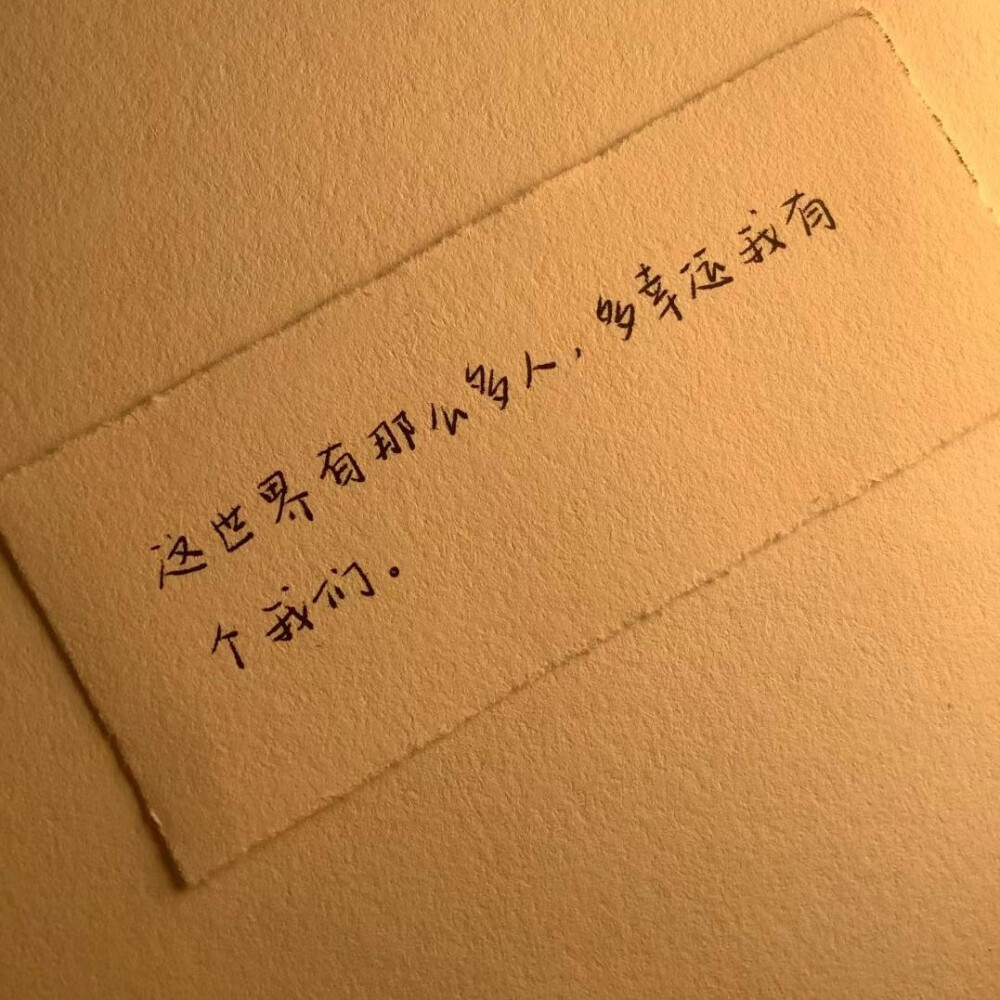 这世界有那么多人，多幸运我有
个我们。